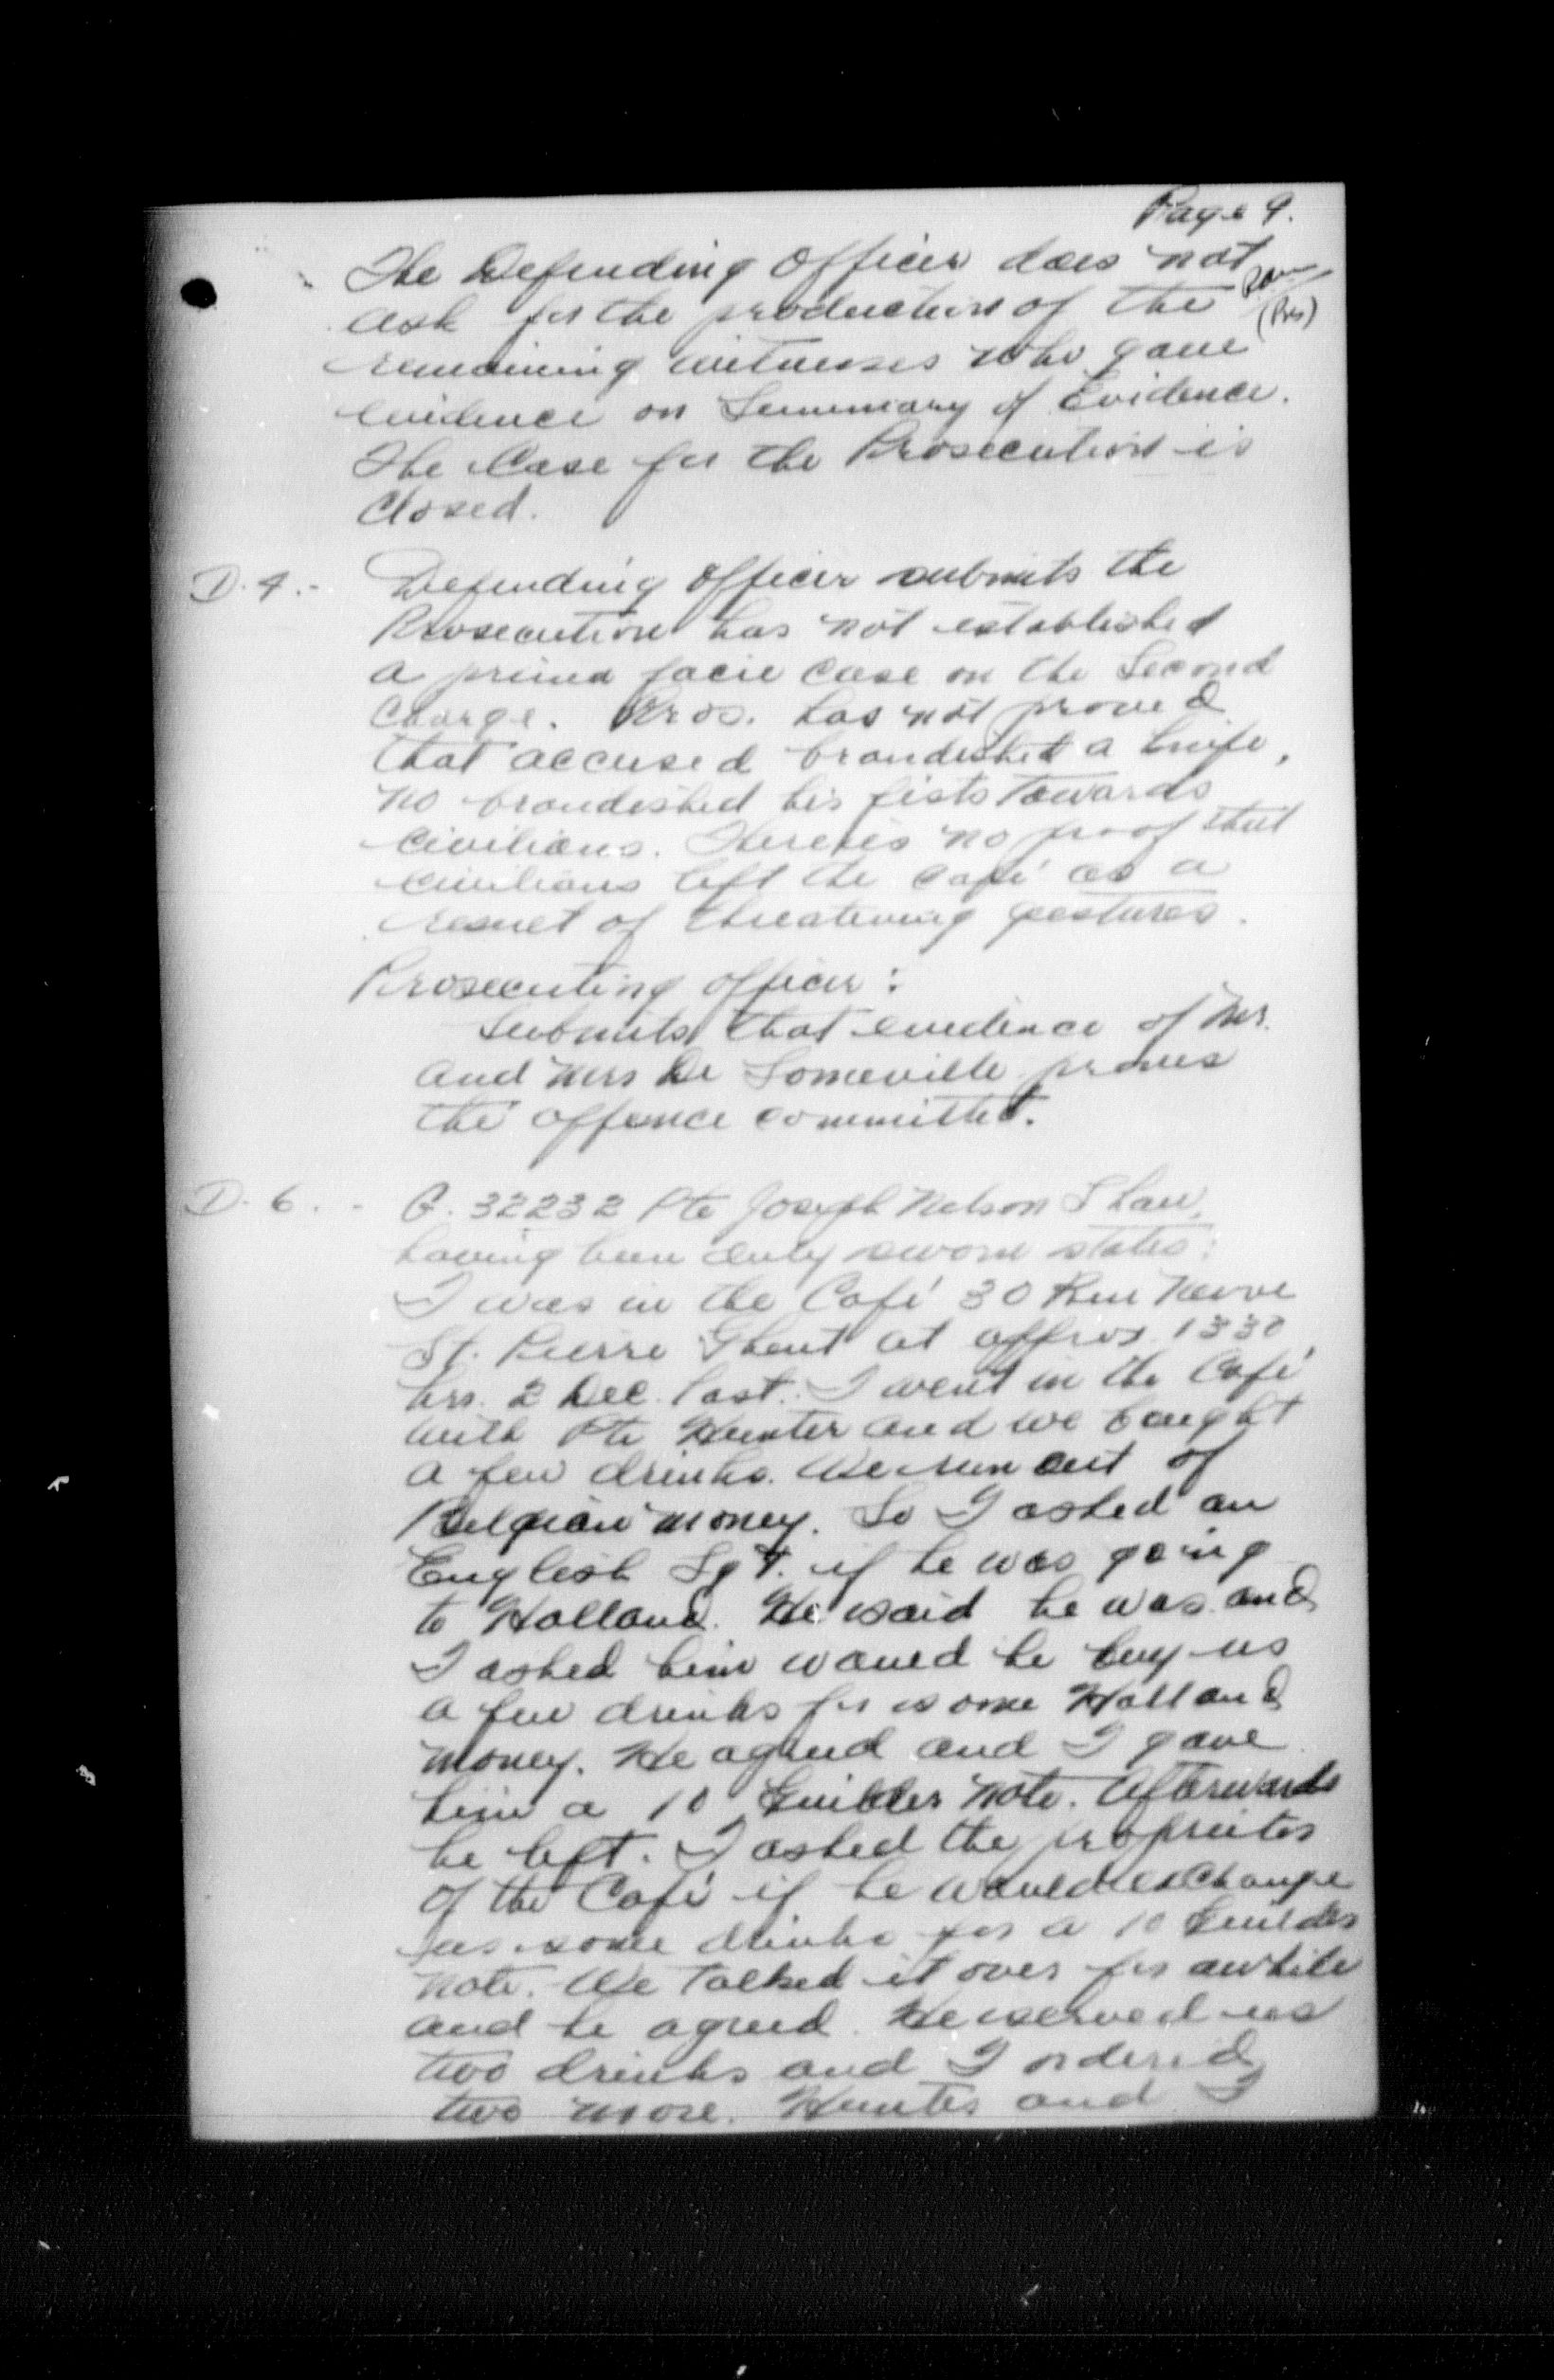 Page 9.
The Defending Officer does not
ask for the production of the
(Pres)
remaining witnesses who gave
evidence on Summary of Evidence.
The Case for the Prosecution is
closed.
D.4.- Defending Officer submits the
Prosecution has not established
a prima facie case on the Second
Charge. Pros. has not proved
that accused brandished a knife,
no brandished his fists towards
civilians. There is no proof that
civilians left the café as a
result of threatening gestures.
Prosecuting Officer:
Submits that evidence of Mr.
and Mrs De Someville proves
the offence committed.
D.6. - G.32232 Pte Joseph Nelson Shaw,
having been duly sworn states:
I was in the Café 30 Rue Neuve
St. Pierre Ghent at approx 1330
hrs. 2 Dec. last. I went in the Café
with Pte Hunter and we bought
a few drinks. We run out of
Belgian money. So I asked an
English Sgt. if he was going
to Holland. He said he was and
I asked him would he buy us
a few drinks for some Holland
money. He agreed and I gave
him a 10 Guilder note. Afterwards
he left. I asked the proprietor
of the Café if he would exchange
us some drinks for a 10 Guilder
note. We talked it over for awhile
and he agreed. He served us
two drinks and I ordered
two more. Hunter and I